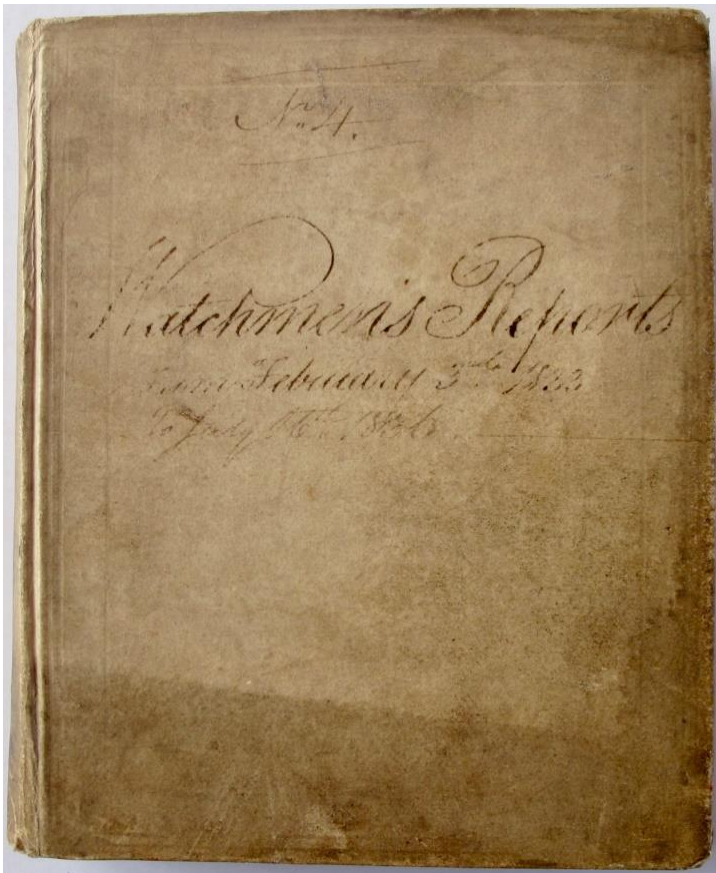 No. 4.
Watchmen's Reports
From February 3rd 1833
To July